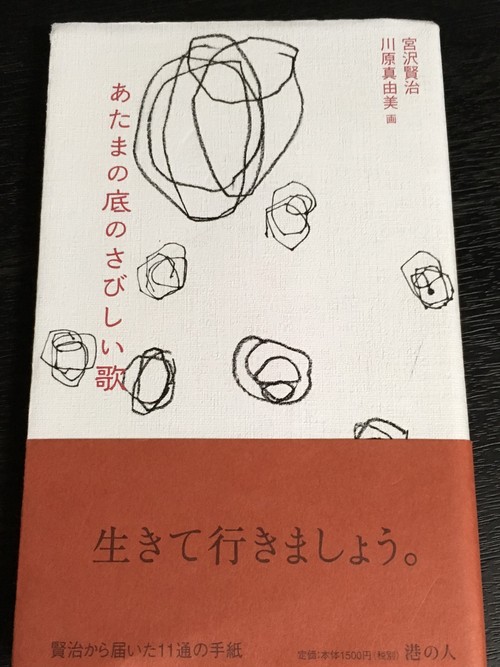 宮沢賢治
川原真由美 画
あたまの底のさびしい歌
生きて行きましょう。
賢治から届いた11通の手紙
定価:本体1500円(税別) 港の人